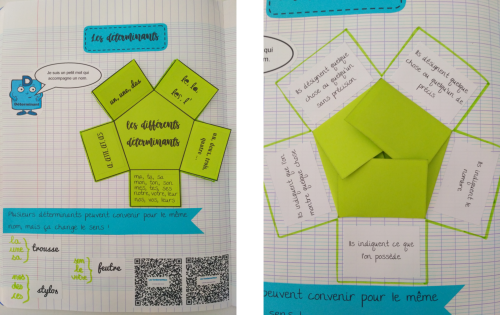 Les déterminants
Je suis un petit mot qui
accompagne un nom.
Déterminant
un, une, des
le, la,
les, l'
les différents
déterminants
un, deux, trois,
quatre ...
ma, ta, sa
mon, ton, son
mes, tes, ses
notre, votre, leur
nos, vos, leurs
Plusieurs déterminants peuvent convenir pour le même
nom, mais ça change le sens !
La
une
sa
trousse
un
le
votre
feutre
mes
des
ces
stylos
qui
Ils désignent quelque
chose ou quelqu'un
sans précision
Ils désignent quelque
chose ou quelqu'un de
précis
Ils indiquent que l'on
montre quelque chose
Ils indiquent le
nombre
Ils indiquent ce que
l'on possède
peuvent convenir pour le même
sens !